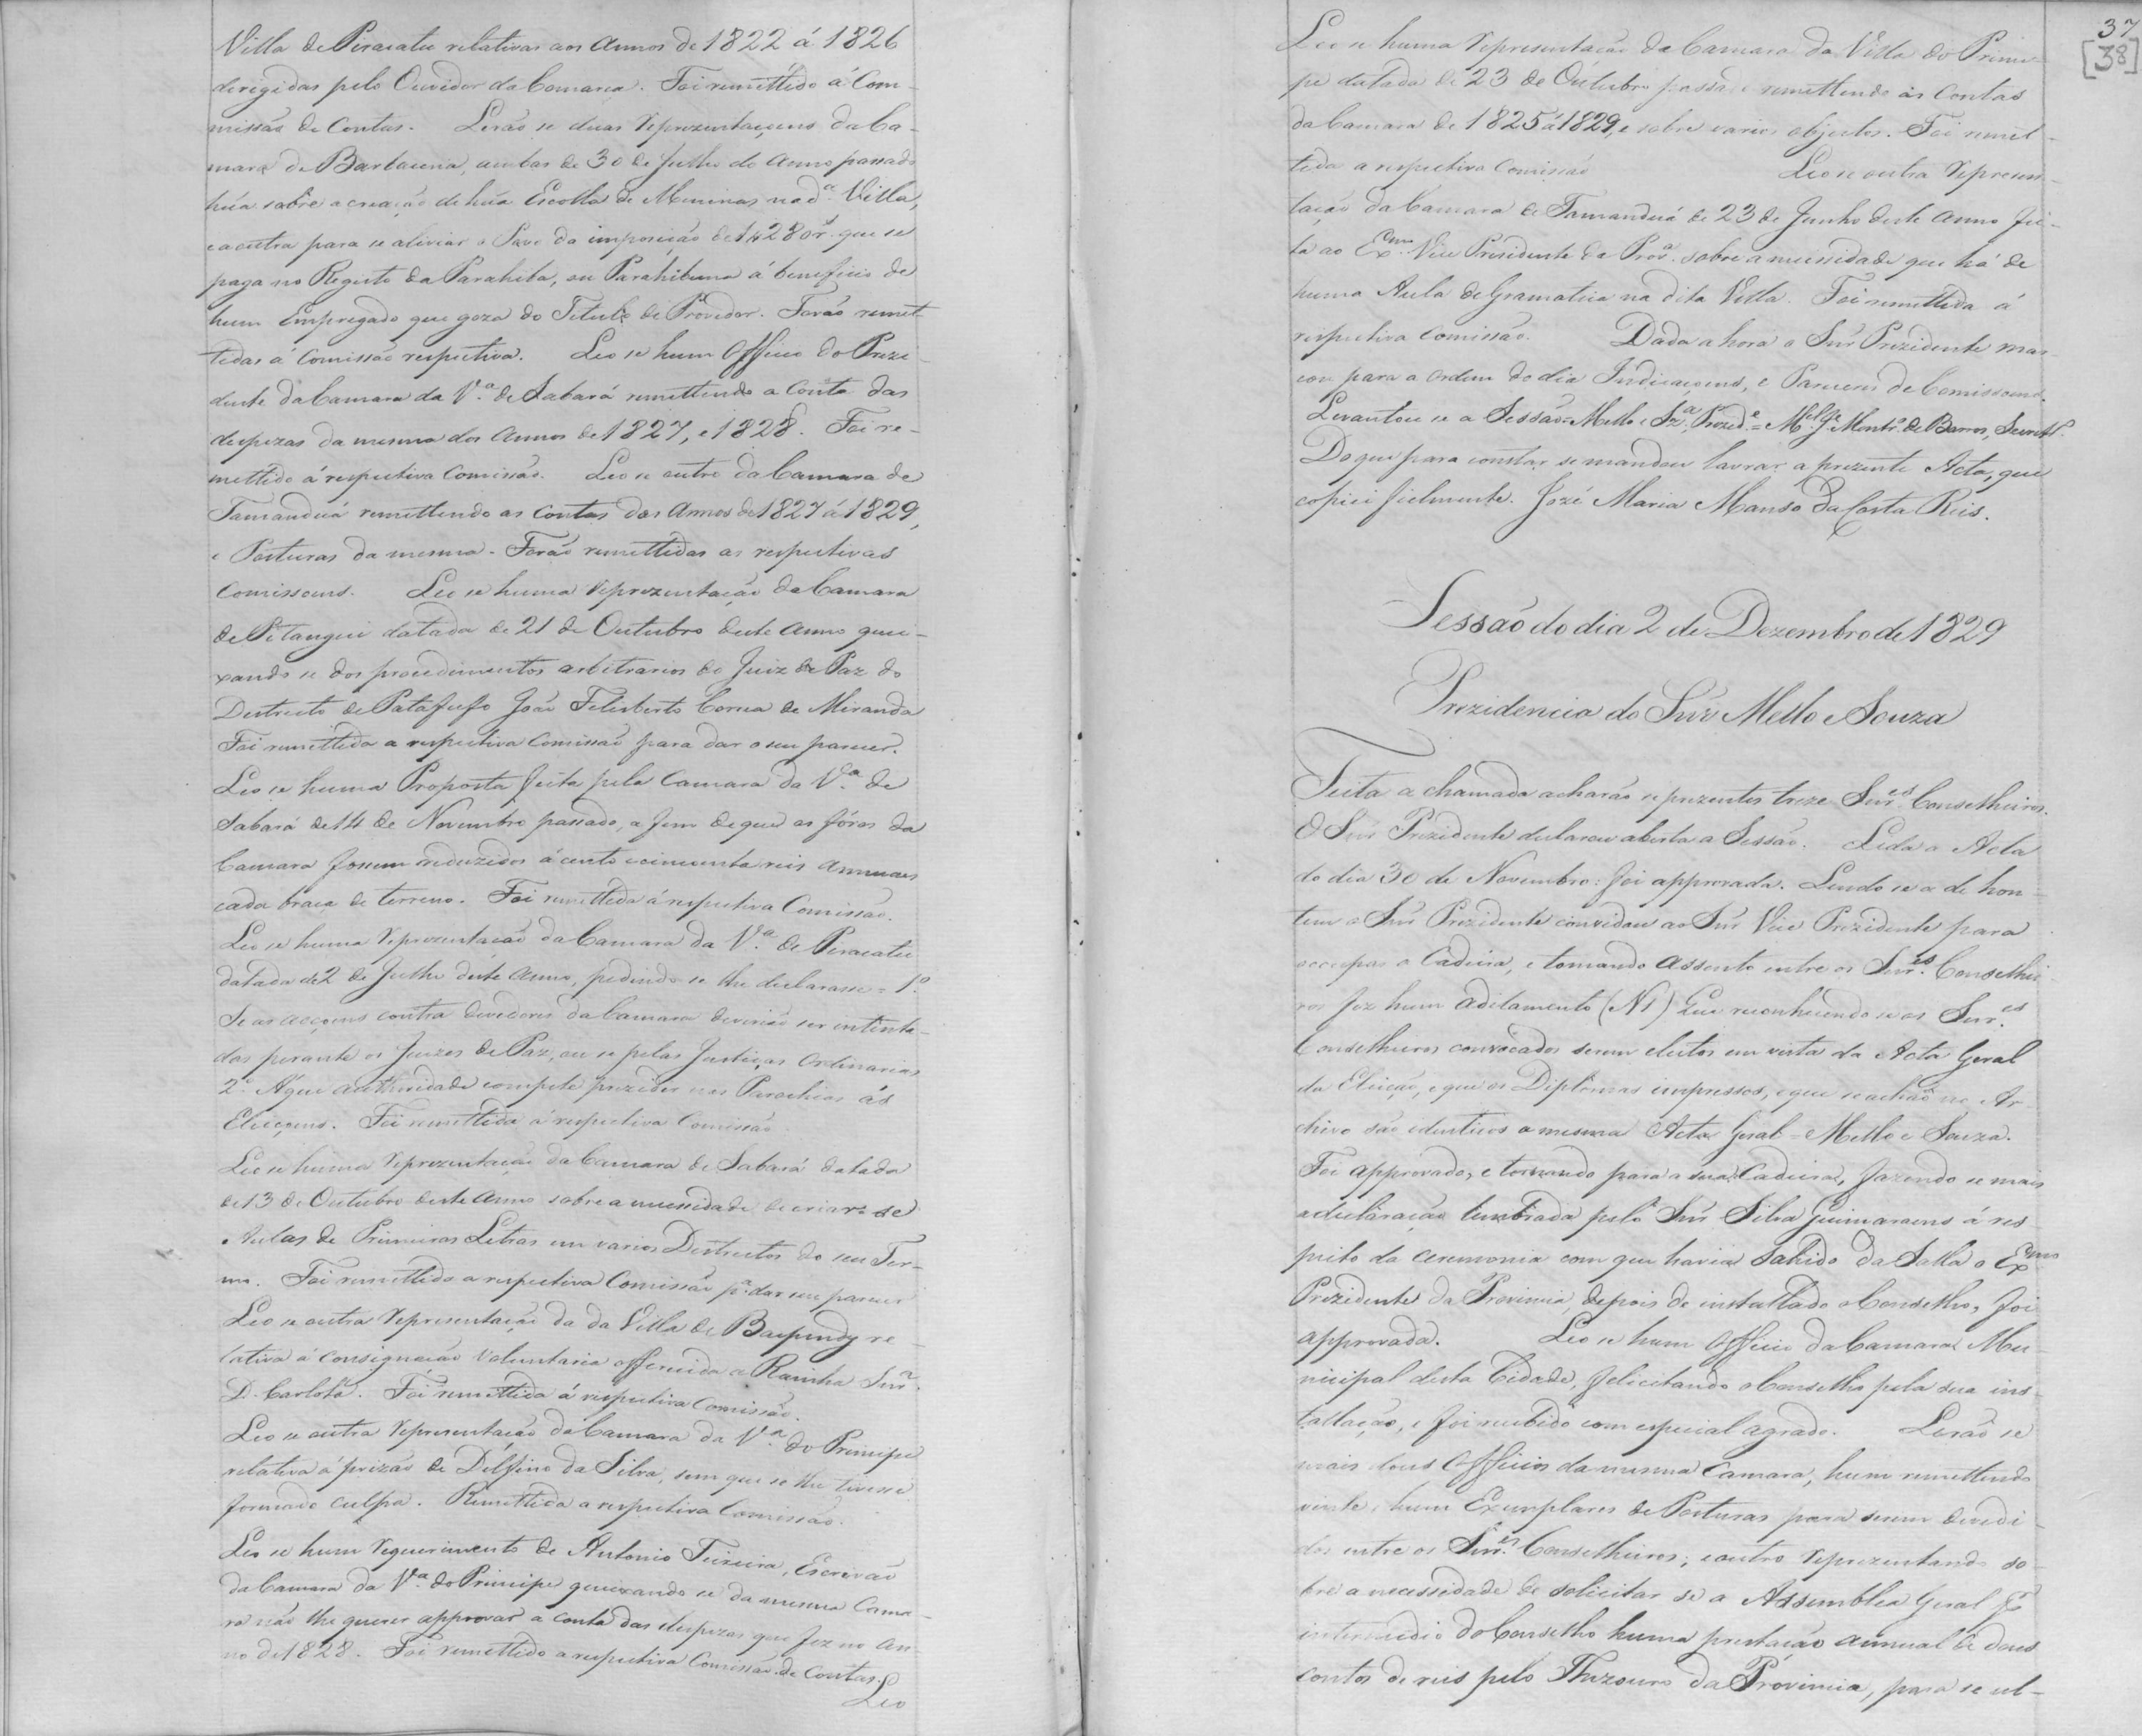 Villa de Piracatu relativas aos Annos de 1822 á 1826
derigidas pelo Ouvidor da Comarca. Foi remettido á Com-
missão de Contas. Lerão se duas Reprezentaçoens da Ca-
mara de Barbacena, ambas de 30 de Julho do Anno passado
húa sobre a creação de húa Escolla de Meninas na d.ª Villa,
e a outra para se aliviar o Povo da imposição de 1$280 r.s que se
paga no Registo da Parahiba, ou Parahibuna á beneficio de
hum Empregado que goza do Titulo de Provedor. Forão remet-
tidas á Comissão respectiva. Leo se hum Officio do Prezi-
dente da Camara da V.ª de Sabará remettendo a Conta das
despezas da mesma dos Annos de 1827, e 1828. Foi re-
mettido á respectiva Comissão. Leo se outro da Camara de
Tamanduá remettendo as Contas dos Annos de 1827 á 1829,
e Posturas da mesma. Forão remettidas as respectivas
Comissoens. Leo se huma Reprezentação da Camara
de Pitangui datada de 21 de Outubro deste Anno quei-
xando se dos procedimentos arbitrarios do Juiz de Paz do
Destricto de Patafufo João Felisberto Correa de Miranda
Foi remettida a respectiva Comissão para dar o seu parecer.
Leo se huma Proposta feita pela Camara da V.ª de
Sabará de 14 de Novembro passado, a fim de que os fóros da
Camara fossem reduzidos á cento e cincoenta reis Annuaes
cada braça de terreno. Foi remettida á respectiva Comissão.
Leo se huma Reprezentação da Camara da V.ª de Piracatu
datada de 2 de Julho deste Anno, pedindo se lhe declarasse = 1.º
Se as acçoens contra devedores da Camara deverião ser intenta-
das perante os Juizes de Paz, ou se pelas Justiças Ordinarias
2.º A que authoridade compete prezidir nas Parochias ás
Eleiçoens. Foi remettida á respectiva Comissão.
Leo se huma Reprezentação da Camara de Sabará datada
de 13 de Outubro deste Anno sobre a necessidade de criar-se
Aulas de Primeiras Letras em varios Destrictos do seu Ter-
mo. Foi remettida a respectiva Comissão p.ª dar seu parecer
Leo se outra Representação da da Villa de Baependy re-
lativa á Consignação Voluntaria offerecida a Rainha Snr.ª
D. Carlota. Foi remettida á respectiva Comissão.
Leo se outra Representação da Camara da V.ª do Principe
relativa á prizão de Delfino da Silva, sem que se lhe tivesse
formado culpa. Remettida a respectiva Comissão.
Leo se hum Requerimento de Antonio Teixeira, Escrivão
da Camara da V.ª do Principe queixando se da mesma Cama-
ra não lhe querer approvar a conta das despezas que fez no An-
no de 1828. Foi remettido a respectiva Comissão de Contas.
Leo
37
[38]
Leo se huma Representação da Camara da Villa do Princi-
pe datada de 23 de Outubro passado remettendo as Contas
da Camara de 1825 á 1829, e sobre varios objectos. Foi remet-
tida a respectiva Comissão Leo se outra Represen-
tação da Camara de Tamanduá de 23 de Junho deste Anno fei-
ta ao Ex.mo Vice Presidente da Prov.ª sobre a necessidade que há de
huma Aula de Gramatica na dita Villa. Foi remettida á
respectiva Comissão. Dada a hora o Snr Prezidente mar-
cou para a Ordem do dia Indicaçoens, e Pareceres de Comissoens.
Levantou se a Sessão = Mello e Sz.ª, Prezid.e = M.el J.e Montr.o de Barros, Secret.º
Do que para constar se mandou lavrar a prezente Acta, que
copiei fielmente. Jozé Maria Manso da Costa Reis.
Sessão do dia 2 de Dezembro de 1829
Prezidencia do Snr Mello e Souza
Feita a chamada acharão se prezentes treze Snr.es Conselheiros.
O Snr Prezidente declarou aberta a Sessão. Lida a Acta
do dia 30 de Novembro: foi approvada. Lendo se a de hon-
tem o Snr Prezidente convidou ao Snr Vice Prezidente para
occupar a Cadeira, e tomando Assento entre os Snr.es Conselhei-
ros fez hum aditamento (N1) Que reconhecendo se os Snr.es
Conselheiros convocados serem eleitos em vista da Acta Geral
da Eleição, e que os Diplomas impressos, e que se achão no Ar-
chivo são identicos a mesma Acta Geral = Mello e Souza.
Foi approvado, e tornando para a sua Cadeira, fazendo se mais
a declaração lembrada pelo Snr Silva Guimaraens á res-
peito da ceremonia com que havia sahido da Salla o Ex.mo
Prezidente da Provincia depois de installado o Conselho, foi
approvada. Leo se hum Officio da Camara Mu-
nicipal desta Cidade, felicitando o Conselho pela sua ins-
tallação, e foi recebido com especial agrado. Lerão se
mais dous Officios da mesma Camara, hum remettendo
vinte e hum Exemplares de Posturas para serem devedi-
dos entre os Snr.es Conselheiros; e outro reprezentando so-
bre a necessidade de solicitar se a Assemblea Geral p.r
intermedio do Conselho huma prestação annual de dous
contos de reis pelo Thezouro da Provincia, para se ul-